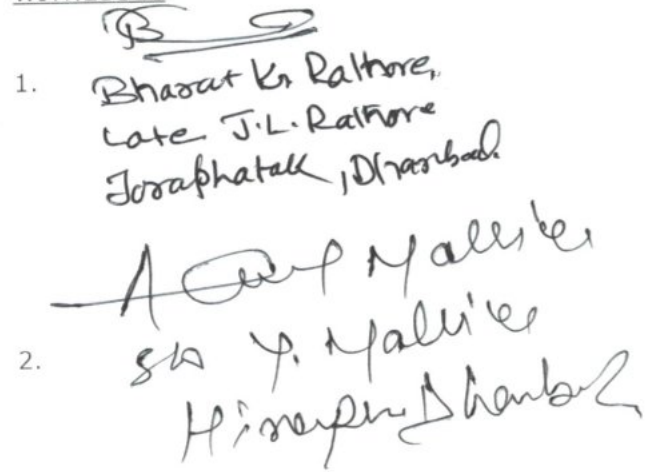 1.
Bharat Kr Rathore,
Late J.L. Rathore
Joraphatak, Dhanbad
Mallick
2.
S/o Y. Mallick
Hirapur Dhanbad